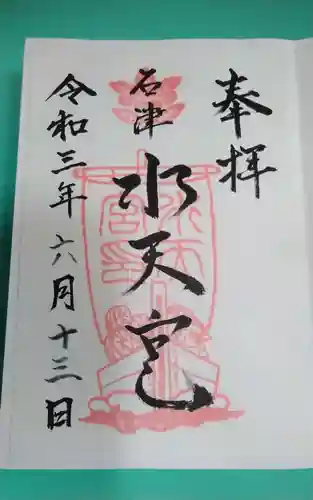 奉拝
石津
水天宮
令和三年六月十三日
水天
宮印